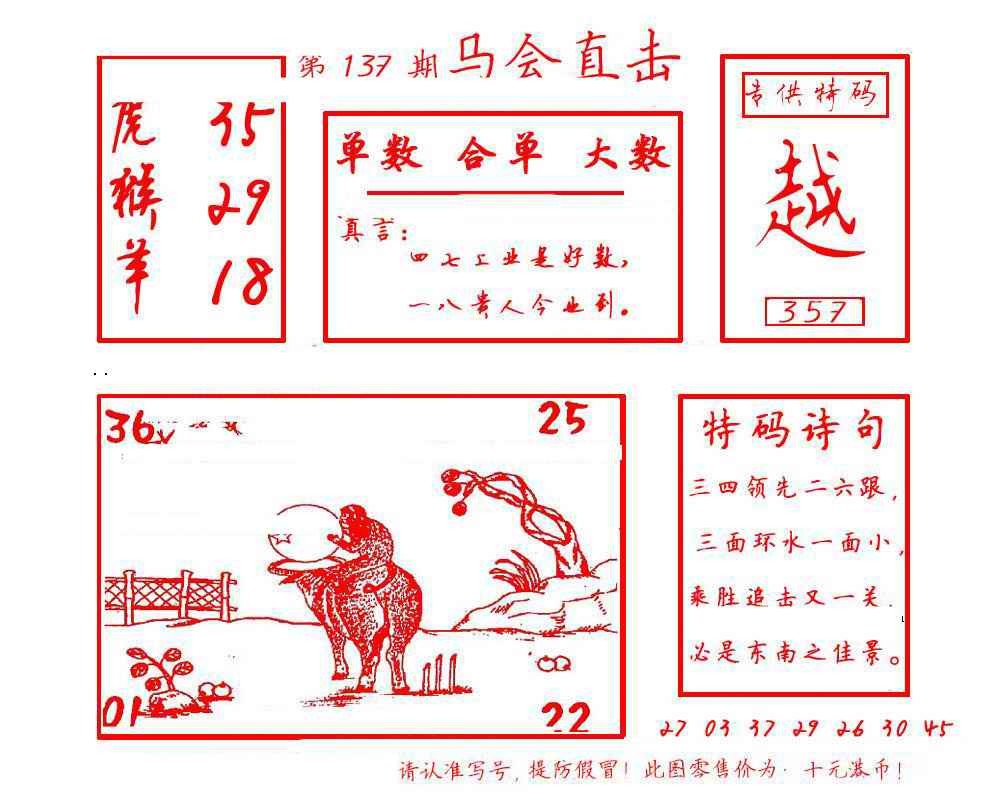 第 137 期 马会直击
虎 35
猴 29
羊 18
单数 合单 大数
真言：
四七工业是好数，
一八贵人今业到。
专供特码
越
357
36
25
01
22
特码诗句
三四领先二六跟，
三面环水一面小，
乘胜追击又一关．
必是东南之佳景。
27 03 37 29 26 30 45
请认准写号，提防假冒！此图零售价为·十元港币！